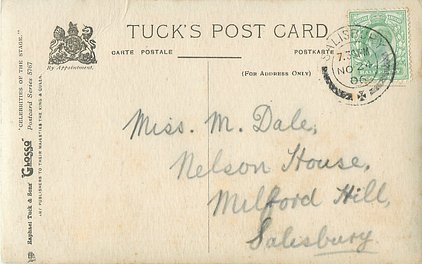 TUCK'S POST CARD
CARTE POSTALE
POSTKARTE
(FOR ADDRESS ONLY)
By Appointment.
SALISBURY
7.30PM
NO
06
Miss. M. Dale,
Nelson House,
Milford Hill,
Salesbury
"CELEBRITIES OF THE STAGE."
Postcard Series 8767
Raphael Tuck & Sons' "GLOSSO"
ART PUBLISHERS TO THEIR MAJESTIES THE KING & QUEEN.